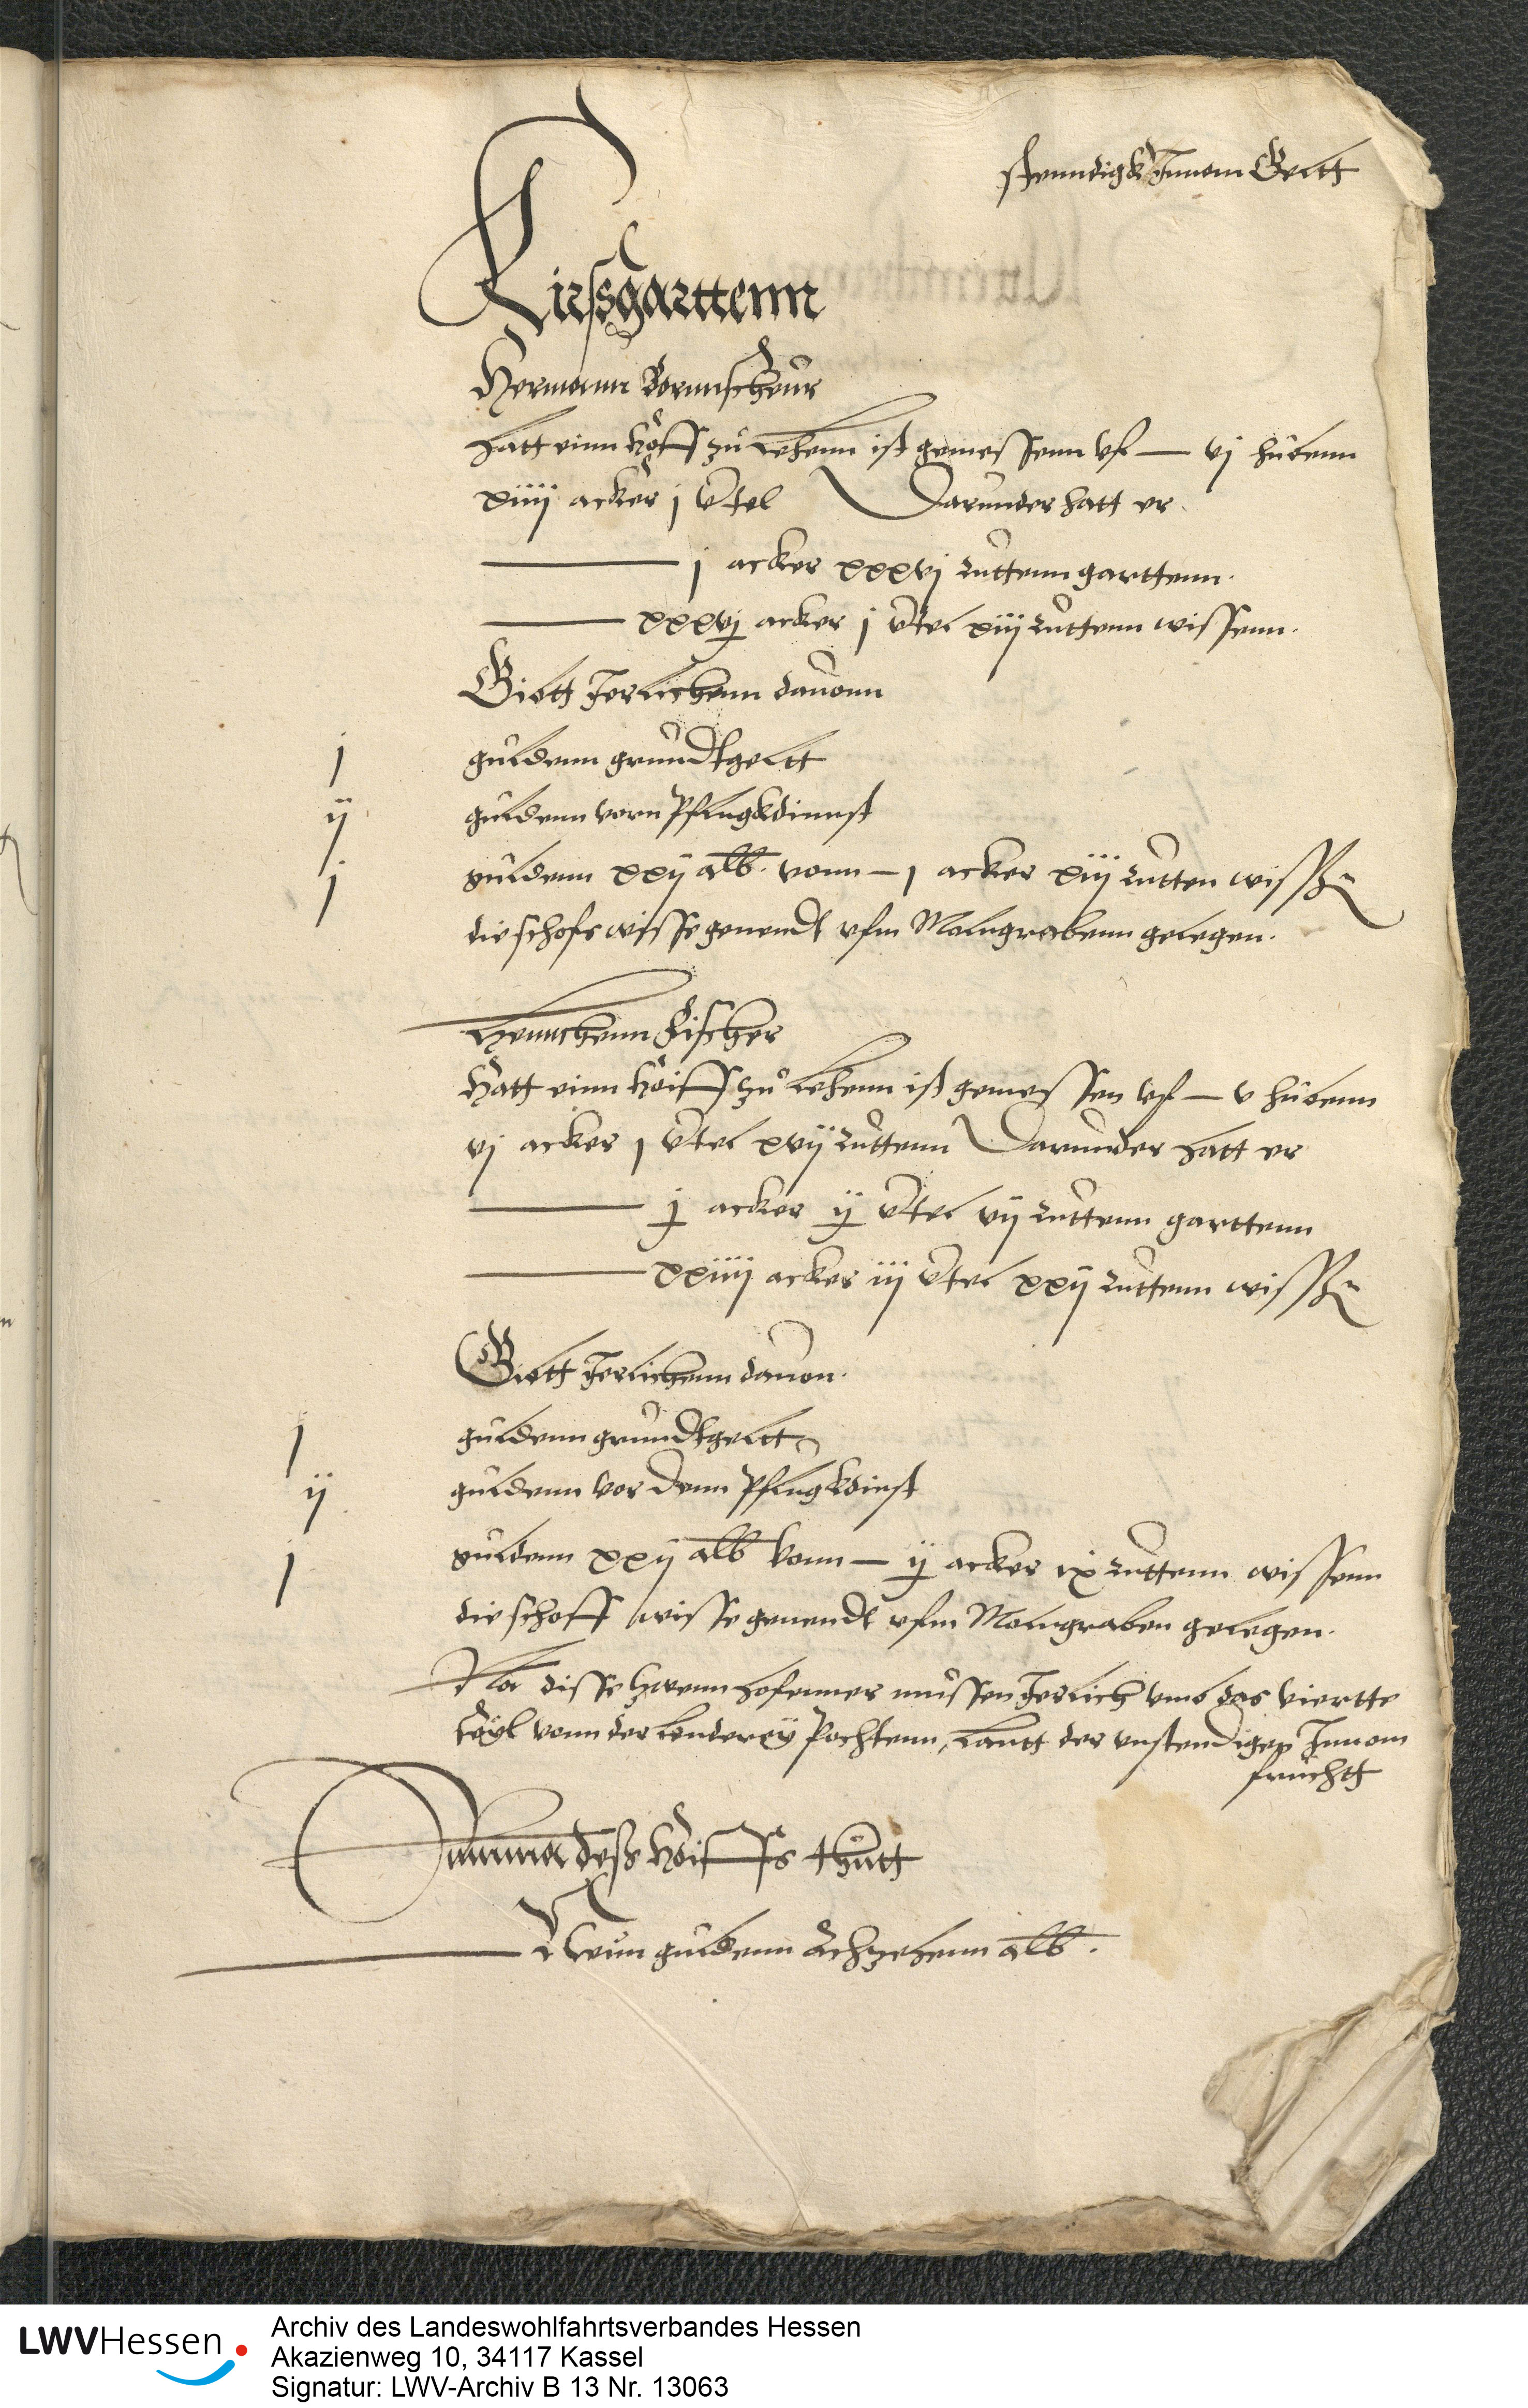 stenndigk Innam Geltt
Kirssgarttenn
Hermann Bornnscheur
hatt einn hoff zu Lehenn ist gemessenn uf — vj hubenn
xiiij acker j vrtel Darunder hatt er
— j acker xxxvj ruttenn garttenn.
— xxxvj acker j vrtel xiij ruttenn wissenn.
Gibtt Jerlichenn dauonn
j guldenn grundtgeltt
ij guldenn vorn Pflugkdinnst
j guldenn xxij alb. vonn — j acker xiij rutten wissenn
die schofs wisse genendt ufm Molngrabenn gelegen.
Hennchenn Fischer
hatt einn hoiff zu Lehenn ist gemessen uf — v hubenn
vj acker j vrtel xvij ruttenn Darunder hatt er
— j acker ij vrtel vij ruttenn garttenn
— xxiiij acker iij vrtel xxij ruttenn wissenn
Gibtt Jerlichenn dauon.
j guldenn grundtgeltt
ij guldenn vor denn Pflugkdinst
j guldenn xxij alb vonn — ij acker ix ruttenn wissenn
die schoff wisse genendt ufm Molngraben gelegen.
Na disse zwenn hofenner mussen Jerlich umb das viertte
teyl vonn der lenderey Pochtenn, Lautt der unstendigen Innam
fruchtt
Summa dess hoiffs thutt
— Neun guldenn Achzehenn alb.
LWVHessen
Archiv des Landeswohlfahrtsverbandes Hessen
Akazienweg 10, 34117 Kassel
Signatur: LWV-Archiv B 13 Nr. 13063